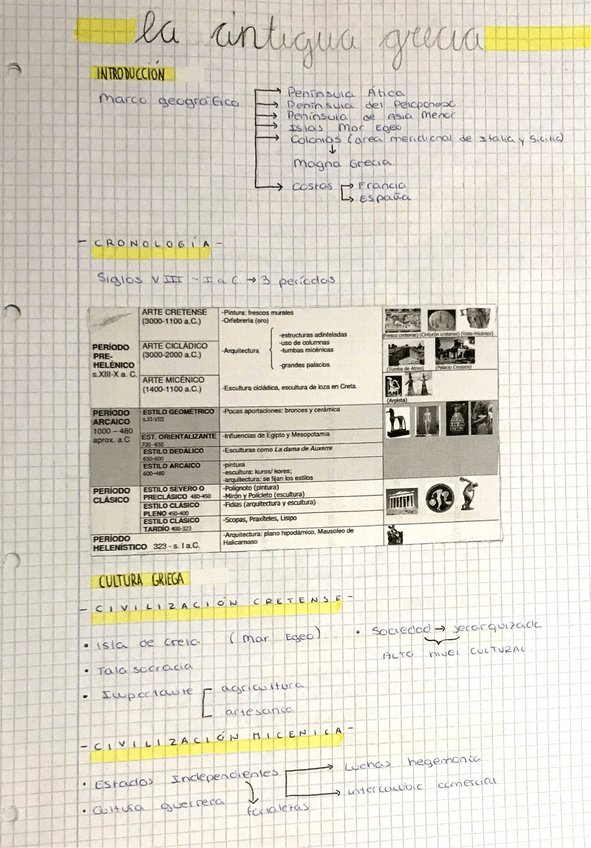 la antigua grecia
INTRODUCCIÓN
Marco geográfico
Península Ática
Península del Peloponeso
Península de Asia Menor
Islas Mar Egeo
Colonias (area meridional de Italia y Sicilia)
Magna Grecia
Costas
Francia
España
- CRONOLOGÍA -
Siglos VIII - I a C → 3 periodos
PERÍODO PRE-HELÉNICO s.XIII-X a. C.
ARTE CRETENSE (3000-1100 a.C.)
-Pintura: frescos murales
-Orfebrería (oro)
ARTE CICLÁDICO (3000-2000 a.C.)
-Arquitectura
-estructuras adinteladas
-uso de columnas
-tumbas micénicas
-grandes palacios
ARTE MICÉNICO (1400-1100 a.C.)
-Escultura cicládica, escultura de loza en Creta.
(Fresco cretense) (Cinturón cretense) (Vaso micénico)
(Tumba de Atreo) (Palacio Cnosos)
PERÍODO ARCAICO 1000 – 480 aprox. a.C
ESTILO GEOMÉTRICO s.XI-VIII
-Pocas aportaciones: bronces y cerámica
EST. ORIENTALIZANTE 720-650
-Influencias de Egipto y Mesopotamia
ESTILO DEDÁLICO 650-600
-Esculturas como La dama de Auxerre
ESTILO ARCAICO 600-480
-pintura
-escultura: kuros/ kores;
-arquitectura: se fijan los estilos
PERÍODO CLÁSICO
ESTILO SEVERO O PRECLÁSICO 480-450
-Polignoto (pintura)
-Mirón y Policleto (escultura)
ESTILO CLÁSICO PLENO 450-400
-Fidias (arquitectura y escultura)
ESTILO CLÁSICO TARDÍO 400-323
-Scopas, Praxíteles, Lisipo
PERÍODO HELENÍSTICO 323 - s. I a.C.
-Arquitectura: plano hipodámico, Mausoleo de Halicarnaso
CULTURA GRIEGA
- CIVILIZACIÓN CRETENSE -
• Isla de Creta (Mar Egeo)
• Sociedad → jerarquizada
ALTO NIVEL CULTURAL
• Talasocracia
• Importante
agricultura
artesania
- CIVILIZACIÓN MICENICA -
• Estados Independientes
Luchas hegemonia
intercambio comercial
• Cultura guerrera
fortalezas